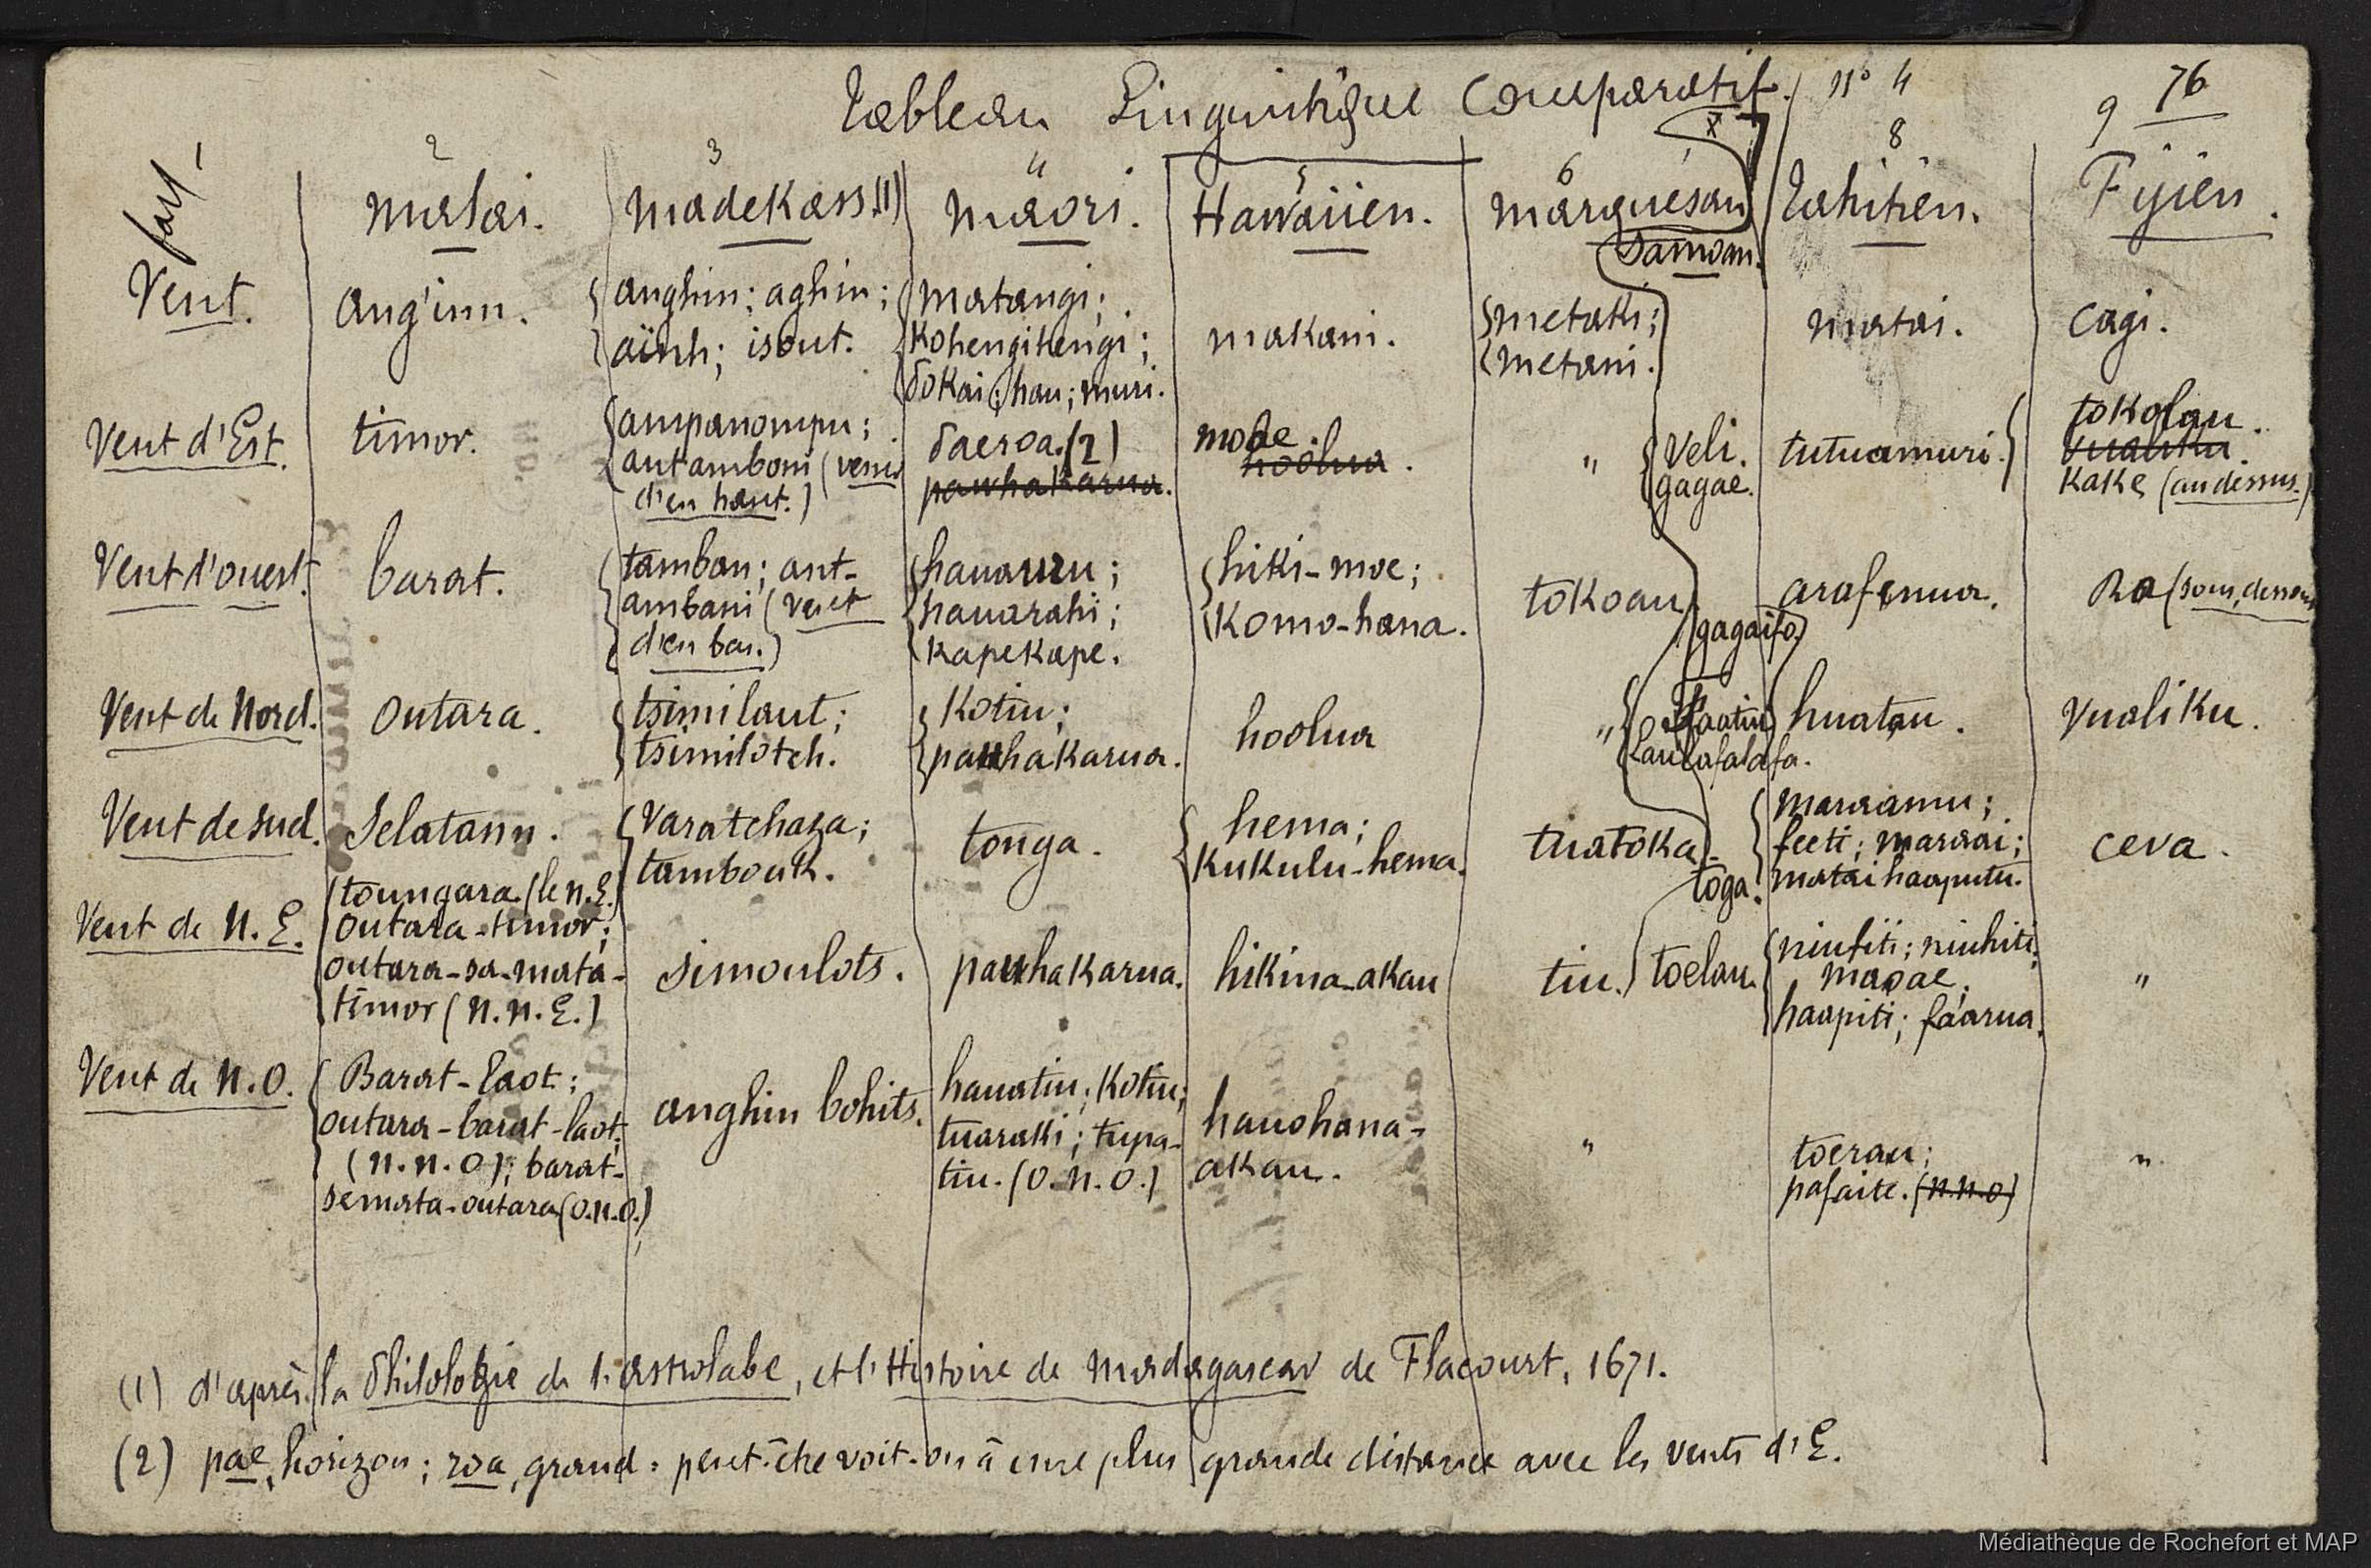 Tableau Linguistique Comparatif. n° 4 76
2 3 4 5 6 X 8 9
malai. madekass.(1) maori. Hawaiien. marquesan Samoan. Tahitien. Fijien.
Vent. ang'inn. anghin; aghin; matangi; makani. metaki; matai. cagi.
aïnh; isout. kohengihengi; metani.
hau; muri.
Vent d'Est. timor. ampanompu; Paeroa.(2) moae. " Veli. tutuamuri. tokolau.
antamboni (venu pawhakarua. hoolua. gagae. vualiku.
d'en haut.) kake (au dessus.)
Vent d'ouest. barat. tamban; ant- hauauru; hiki-moe; tokoau gagaifo. arafenua. Ra (sous, dessous
ambani (vent hauarahi; Komo-hana.
d'en bas.) kapekape.
Vent de Nord. outara. tsimilaut; Kotiu; hoolua " faatiu huatau. vualiku.
tsimilotch. pauhakarua. Laulafalafa.
Vent de sud. Selatann. Varatchaza; tonga. hema; tuatoka. toga. maraamu; ceva.
tambouk. Kukulu-hema. feeti; maraai;
matai haaputu.
Vent de N.E. toungara.(le N.E.) simoulots. pauhakarua. hikina-akau tiu. toelau. niufiti; niuhiti; "
outara-timor; maoae,
outara-sa-mata- haapiti; fáarua.
timor (N.N.E.)
Vent de N.O. Barat-laot; anghin bohits. hauatiu; Kotiu; hauohana- " toerau; "
outara-barat-laot; tuaraki; tupa- akau. pafaite. (N.N.O)
(N.N.O); barat- tiu. (O.N.O.)
semata-outara (O.N.O.)
(1) d'après la Philologie de l'astrolabe, et l'Histoire de Madagascar de Flacourt, 1671.
(2) pae, horizon; roa, grand = peut-être voit-on à une plus grande distance avec les vents d'E.
Médiathèque de Rochefort et MAP